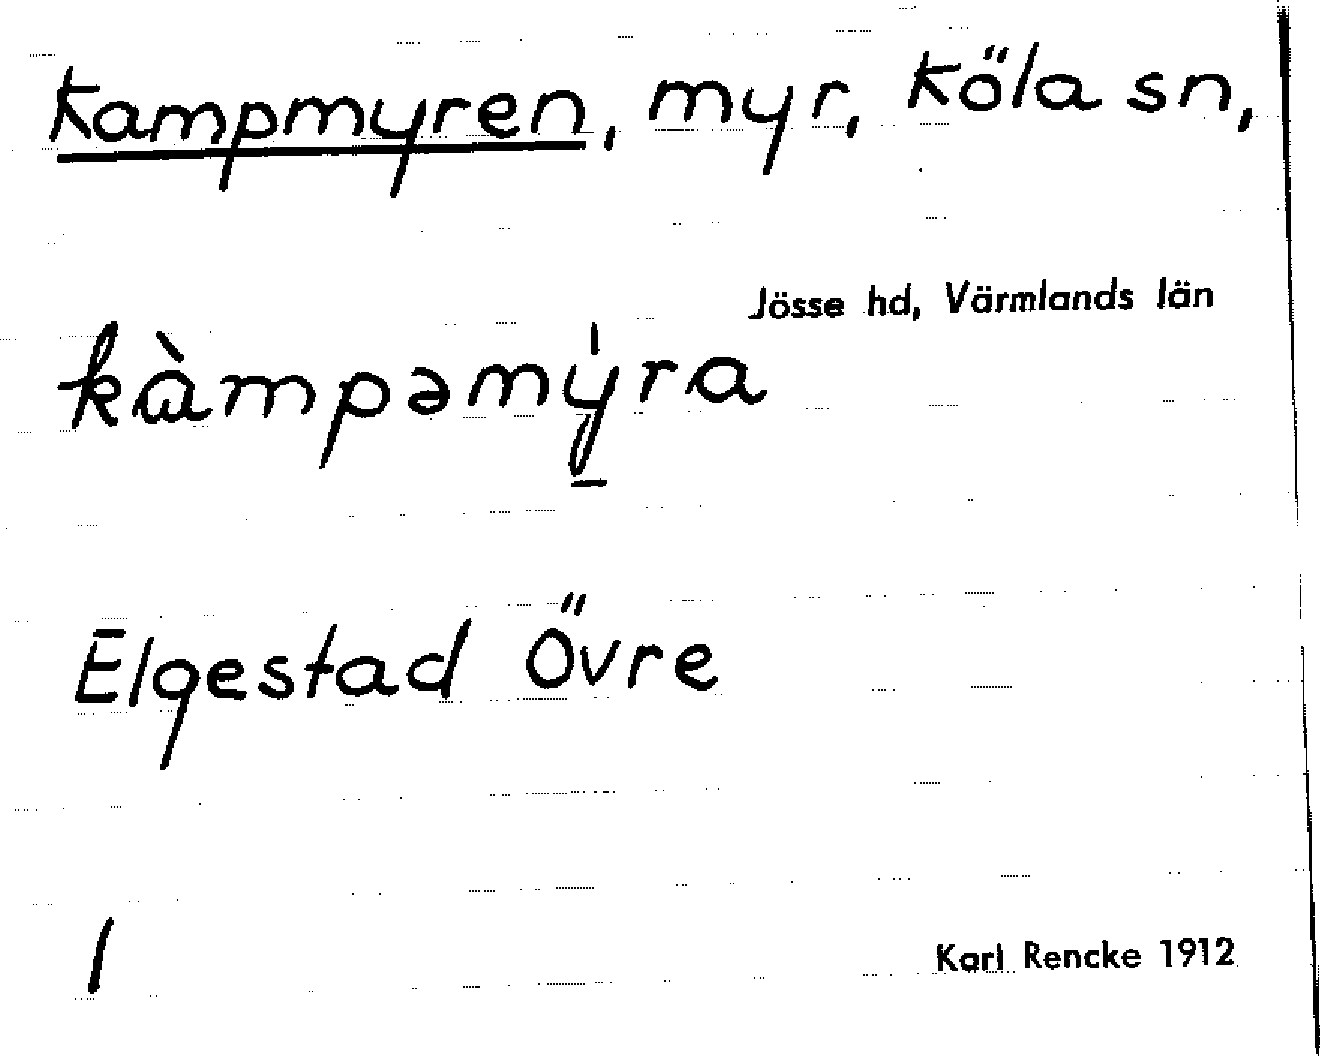 Kampmyren, myr, Köla sn,
Jösse hd, Värmlands län
kàmpəmy̠̍ra
Elgestad Övre
1
Karl Rencke 1912